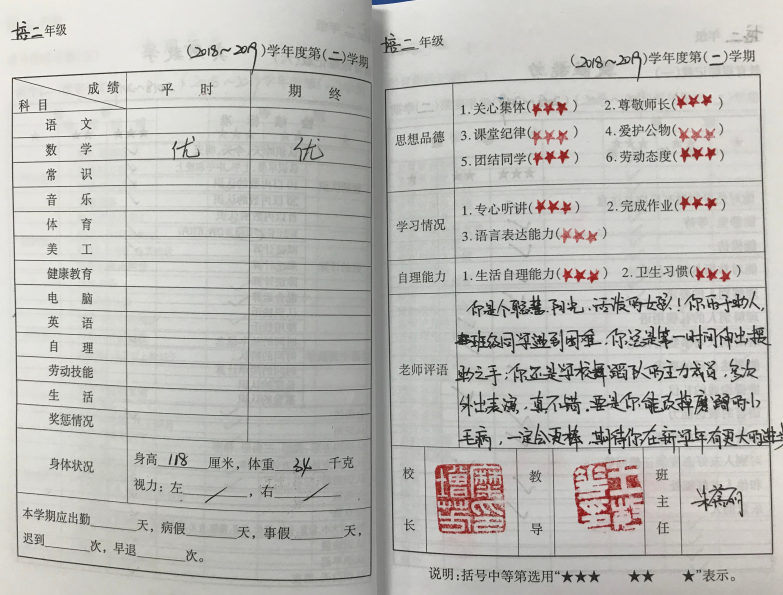 培二年级
(2018～2019)学年度第(二)学期
成绩 平时 期终
科目
语文
数学 优 优
常识
音乐
体育
美工
健康教育
电脑
英语
自理
劳动技能
生活
奖惩情况
身体状况
身高118厘米，体重34千克
视力：左／，右／
本学期应出勤 天，病假 天，事假 天，
迟到 次，早退 次。
培二年级
(2018～2019)学年度第(二)学期
思想品德
1.关心集体(★★★) 2.尊敬师长(★★★)
3.课堂纪律(★★★) 4.爱护公物(★★★)
5.团结同学(★★★) 6.劳动态度(★★★)
学习情况
1.专心听讲(★★★) 2.完成作业(★★★)
3.语言表达能力(★★★)
自理能力 1.生活自理能力(★★★) 2.卫生习惯(★★★)
老师评语
你是个聪慧、阳光、活泼的女孩！你乐于助人，
班级同学遇到困难，你总是第一时间伸出援
助之手；你还是学校舞蹈队的主力成员，多次
外出表演，真不错，要是你能改掉磨蹭的小
毛病，一定会更棒，期待你在新学年有更大的进步
校长 教导 班主任
说明：括号中等第选用“★★★ ★★ ★”表示。